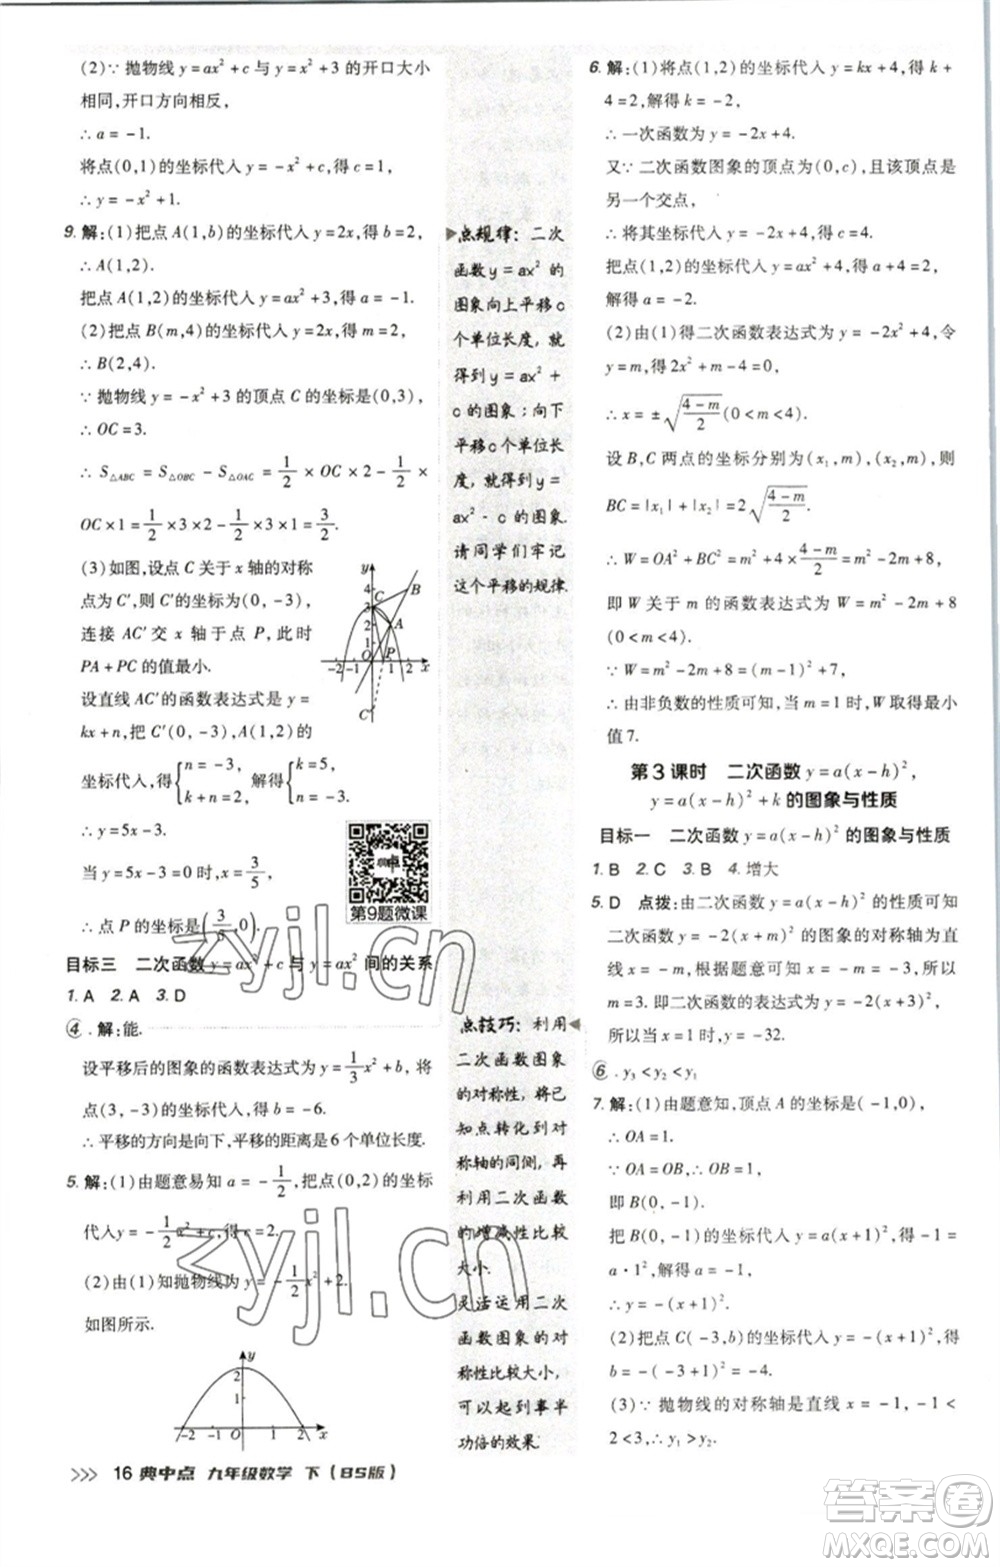 (2)∵抛物线y=ax²+c与y=x²的开口大小
相同,开口方向相反,
∴a=-1.
将点(0,1)的坐标代入y=-x²+c,得c=1.
∴y=-x²+1.
9.解:(1)把点A(1,b)的坐标代入y=2x,得b=2.
∴A(1,2).
把点A(1,2)的坐标代入y=ax²+3,得a=-1.
(2)把点B(m,4)的坐标代入y=2x,得m=2.
∴B(2,4).
∵抛物线y=-x²+3的顶点C的坐标是(0,3),
∴OC=3.
∴S△ABC=S△OBC-S△OAC=1/2×OC×2-1/2×
OC×1=1/2×3×2-1/2×3×1=3/2.
(3)如图,设点C关于x轴的对称
点为C′,则C′的坐标为(0,-3),
连接AC′交x轴于点P,此时
PA+PC的值最小.
设直线AC′的函数表达式是y=
kx+n,把C′(0,-3),A(1,2)的
坐标代入,得{n=-3, k+n=2, 解得{k=5, n=-3.
∴y=5x-3.
当y=5x-3=0时,x=3/5,
∴点P的坐标是(3/5,0).
y 4 3 2 1 C B A O P -2 -1 1 2 x C′
第9题微课
目标三 二次函数y=ax²+c与y=ax²间的关系
1.A 2.A 3.D
④.解:能.
设平移后的图象的函数表达式为y=1/3x²+b,将
点(3,-3)的坐标代入,得b=-6.
∴平移的方向是向下,平移的距离是6个单位长度.
5.解:(1)由题意易知a=-1/2,把点(0,2)的坐标
代入y=-1/2x²+c,得c=2.
(2)由(1)知抛物线为y=-1/2x²+2.
如图所示.
y 2 1 -2 -1 O 1 2 x
16 典中点 九年级数学 下(BS版)
点规律:二次
函数y=ax²的
图象向上平移c
个单位长度,就
得到y=ax²+
c的图象;向下
平移c个单位长
度,就得到y=
ax²-c的图象.
请同学们牢记
这个平移的规律.
点技巧:利用
二次函数图象
的对称性,将已
知点转化到对
称轴的同侧,再
利用二次函数
的增减性比较
大小.
灵活运用二次
函数图象的对
称性比较大小,
可以起到事半
功倍的效果.
6.解:(1)将点(1,2)的坐标代入y=kx+4,得k+
4=2,解得k=-2,
∴一次函数为y=-2x+4.
又∵二次函数图象的顶点为(0,c),且该顶点是
另一个交点,
∴将其坐标代入y=-2x+4,得c=4.
把点(1,2)的坐标代入y=ax²+4,得a+4=2,
解得a=-2.
(2)由(1)得二次函数表达式为y=-2x²+4,令
y=m,得2x²+m-4=0,
∴x=±√((4-m)/2)(0<m<4).
设B,C两点的坐标分别为(x₁,m),(x₂,m),则
BC=|x₁|+|x₂|=2√((4-m)/2),
∴W=OA²+BC²=m²+4×(4-m)/2=m²-2m+8,
即W关于m的函数表达式为W=m²-2m+8
(0<m<4).
∵W=m²-2m+8=(m-1)²+7,
∴由非负数的性质可知,当m=1时,W取得最小
值7.
第3课时 二次函数y=a(x-h)²,
y=a(x-h)²+k的图象与性质
目标一 二次函数y=a(x-h)²的图象与性质
1.B 2.C 3.B 4.增大
5.D 点拨:由二次函数y=a(x-h)²的性质可知
二次函数y=-2(x+m)²的图象的对称轴为直
线x=-m,根据题意可知,直线为x=-3,所以
m=3.即二次函数的表达式为y=-2(x+3)²,
所以当x=1时,y=-32.
⑥.y₃<y₂<y₁
7.解:(1)由题意知,顶点A的坐标是(-1,0),
∴OA=1.
∵OA=OB,∴OB=1,
即B(0,-1).
把B(0,-1)的坐标代入y=a(x+1)²,得-1=
a·1²,解得a=-1,
∴y=-(x+1)².
(2)把点C(-3,b)的坐标代入y=-(x+1)²,得
b=-(-3+1)²=-4.
(3)∵抛物线的对称轴是直线x=-1,-1<2
<3,∴y₁>y₂.
zyjl.cn
zyjl.cn
答案卷
MXQE.COM